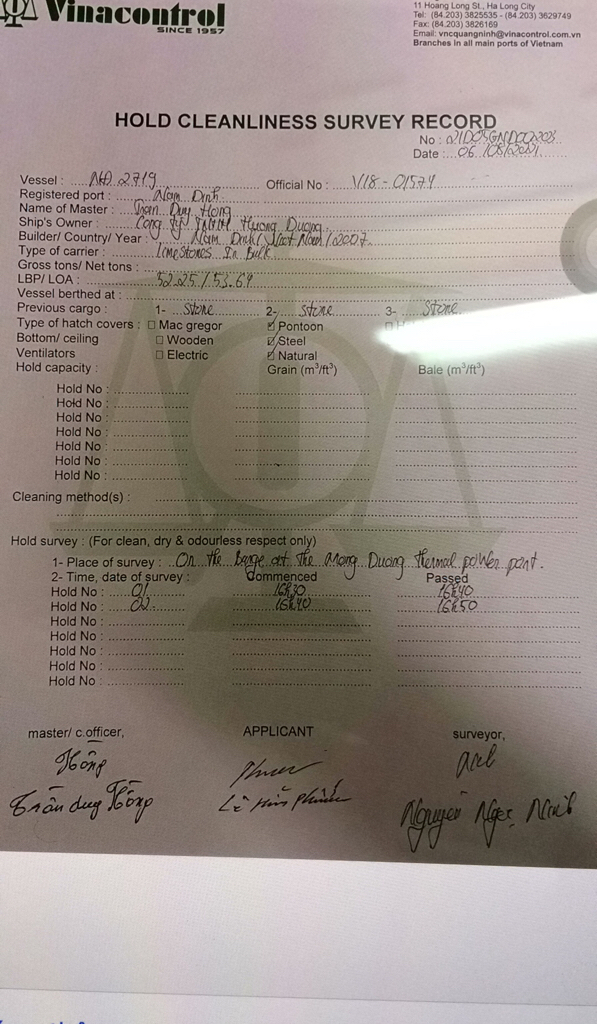 Vinacontrol
SINCE 1957
11 Hoang Long St., Ha Long City
Tel: (84.203) 3825535 - (84.203) 3629749
Fax: (84.203) 3826169
Email: vncquangninh@vinacontrol.com.vn
Branches in all main ports of Vietnam
HOLD CLEANLINESS SURVEY RECORD
No :
Date : 06/08/2021
Vessel : NĐ 2719 Official No : V18-01574
Registered port : Nam Dinh
Name of Master : Tran Duy Hong
Ship's Owner : Cong ty TNHH Huong Duong
Builder/ Country/ Year : Nam Dinh/ Viet Nam/ 2007
Type of carrier : Limestones In Bulk
Gross tons/ Net tons :
LBP/ LOA : 52.25 / 53.64
Vessel berthed at :
Previous cargo : 1- Stone 2- Stone 3- Stone
Type of hatch covers : Mac gregor Pontoon
Bottom/ ceiling Wooden Steel
Ventilators Electric Natural
Hold capacity : Grain (m³/ft³) Bale (m³/ft³)
Hold No :
Hold No :
Hold No :
Hold No :
Hold No :
Hold No :
Hold No :
Cleaning method(s) :
Hold survey : (For clean, dry & odourless respect only)
1- Place of survey : On the Barge at the Mong Duong thermal power pant.
2- Time, date of survey : Commenced Passed
Hold No : 01 16h30 16h40
Hold No : 02 16h40 16h50
Hold No :
Hold No :
Hold No :
Hold No :
Hold No :
master/ c.officer, APPLICANT surveyor,
Hồng
Trần duy Hồng Nguyễn Ngọc